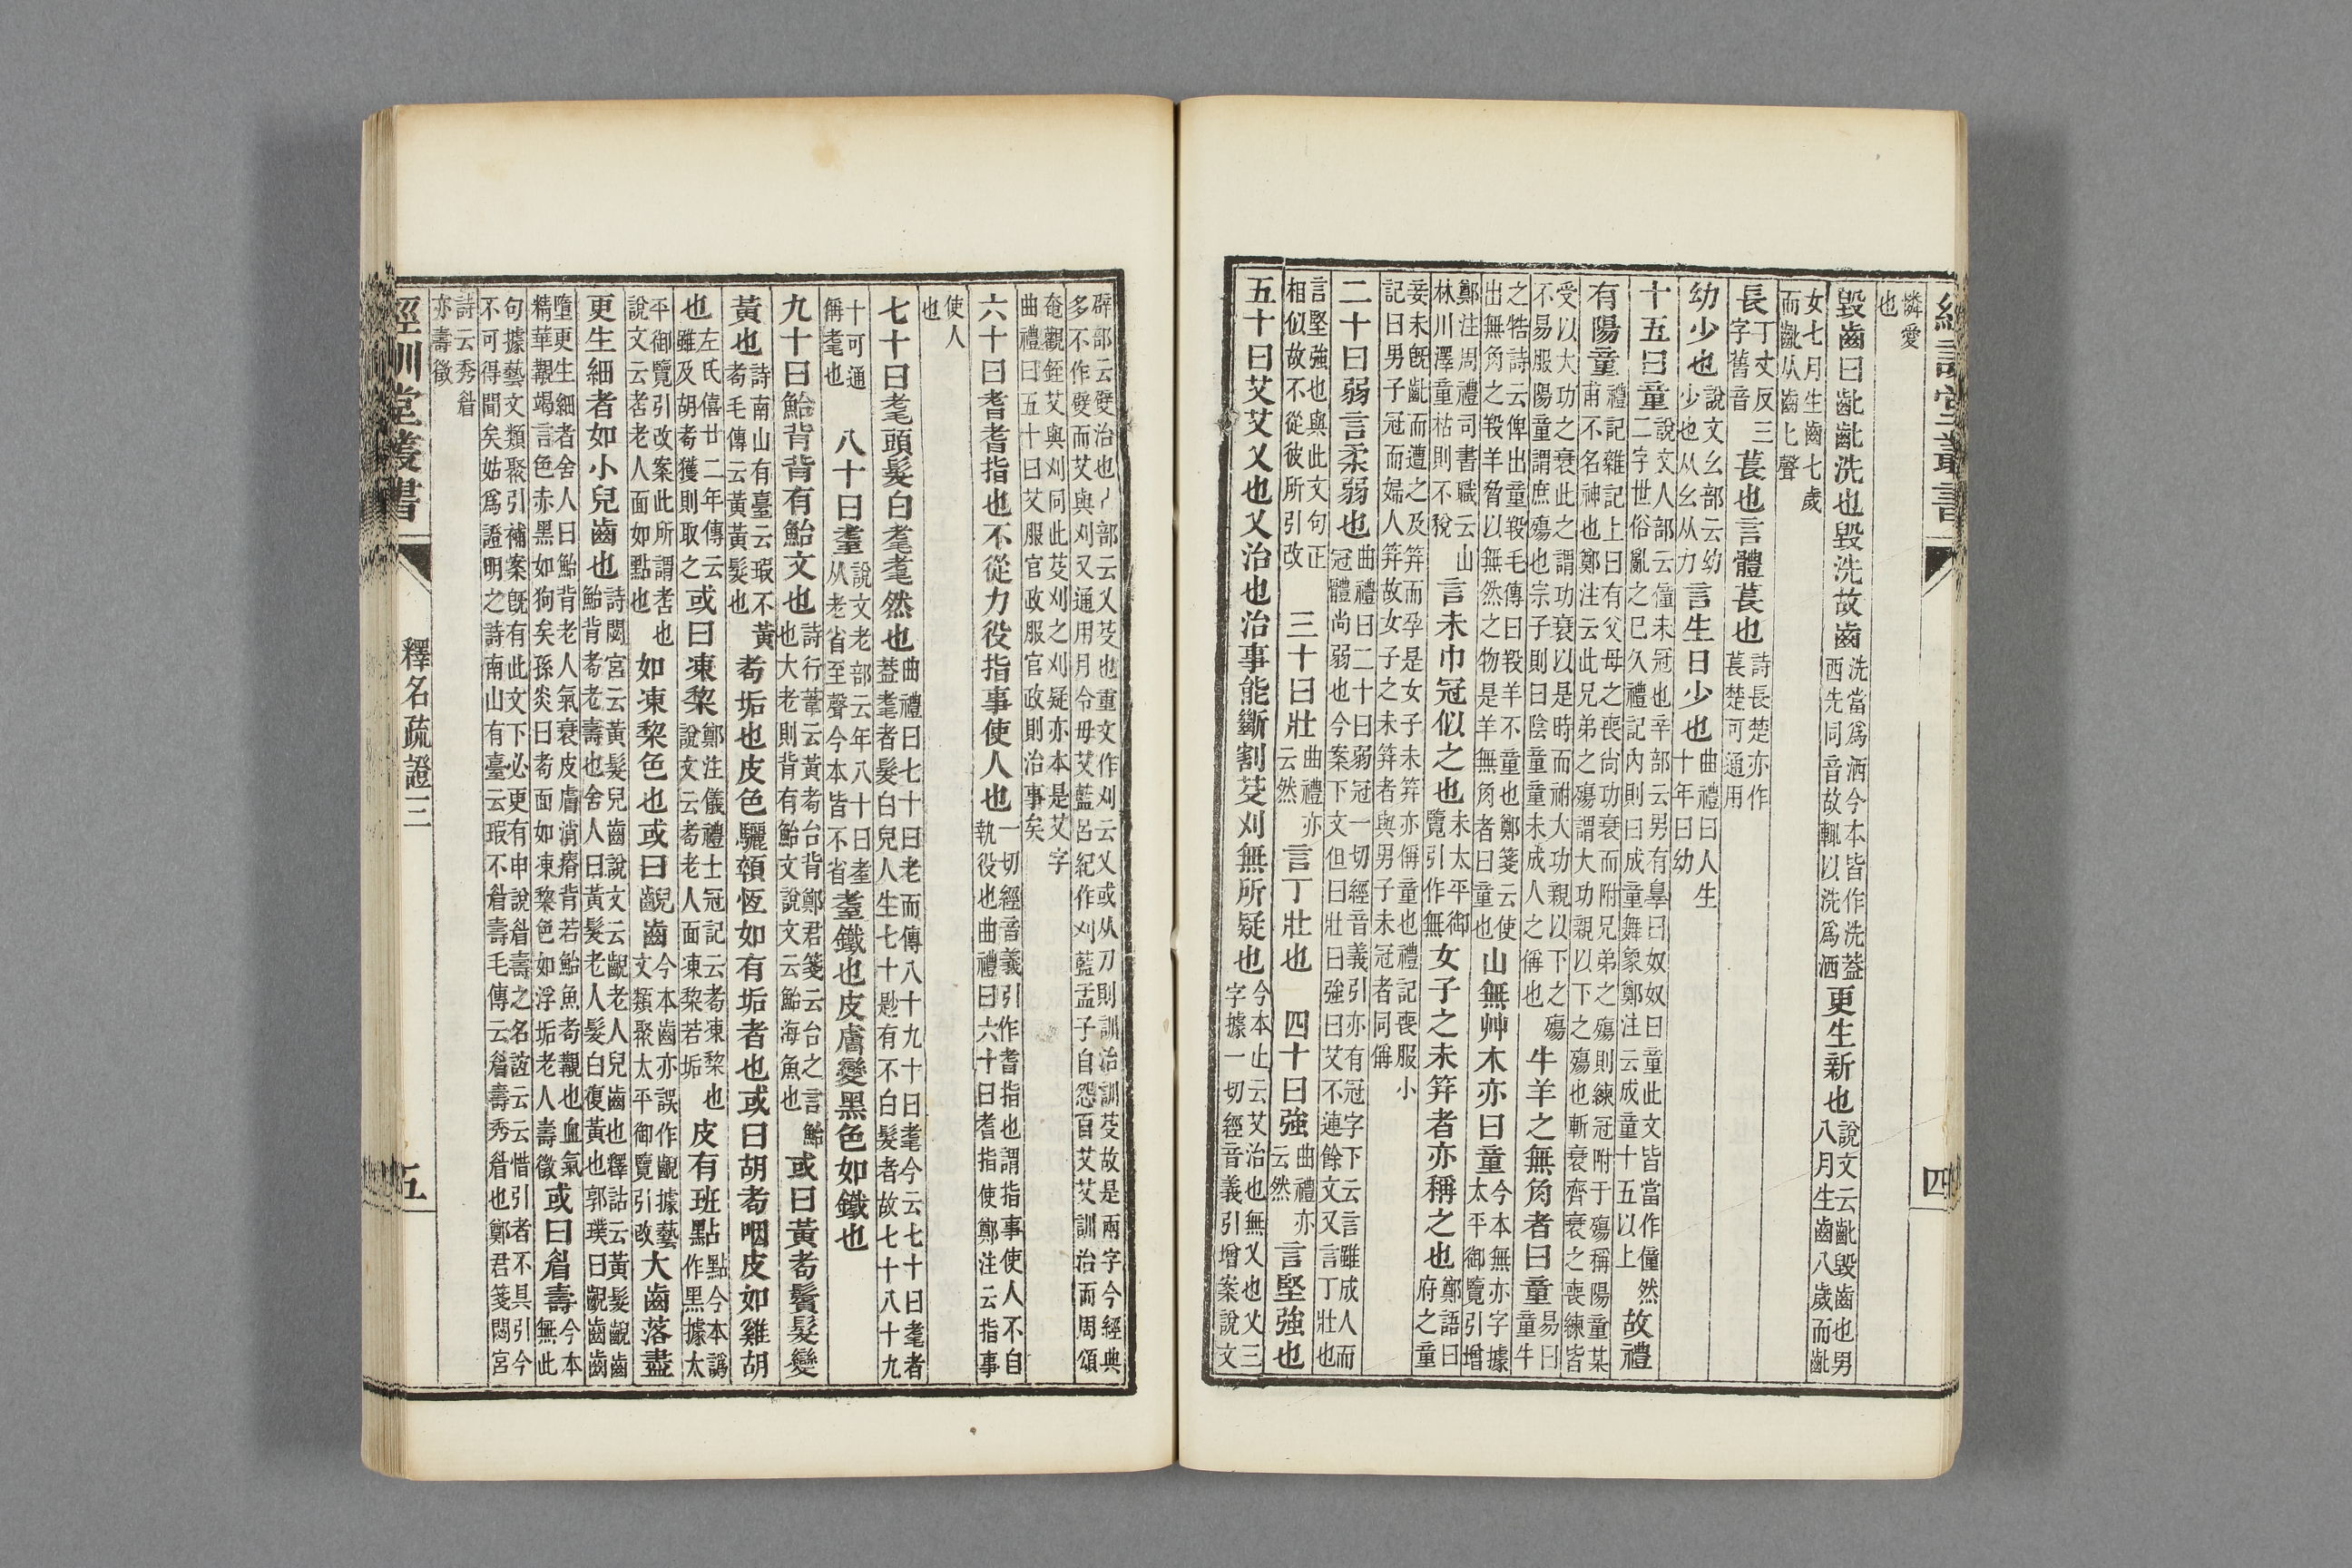 憐愛
也
毀齒曰齔齔洗也毀洗故齒洗當爲洒今本皆作洗葢西先同音故輒以洗爲洒更生新也說文云齔毀齒也男八月生齒八歲而齔
女七月生齒七歲而齔从齒七聲
長丁丈反三字舊音萇也言體萇也詩長楚亦作萇楚可通用
幼少也說文幺部云幼少也从幺从力言生日少也曲禮曰人生十年曰幼
十五曰童說文人部云僮未冠也䇂部云男有辠曰奴奴曰童此文皆當作僮然二字世俗亂之已久禮記內則曰成童舞象鄭注云成童十五以上故禮
有陽童禮記雜記上曰有父母之喪尙功衰而附兄弟之殤則練冠附于殤稱陽童某甫不名神也鄭注云此兄弟之殤謂大功親以下之殤也斬衰齊衰之喪練皆
受以大功之衰此之謂功衰以是時而祔大功親以下之殤不易服陽童謂庶殤也宗子則曰陰童童未成人之偁也牛羊之無角者曰童易曰童牛
之牿詩云俾出童羖毛傳曰羖羊不童也鄭箋云使出無角之羖羊脅以無然之物是羊無角者曰童也山無艸木亦曰童今本無亦字據太平御覽引增
鄭注周禮司書職云山林川澤童枯則不稅言未巾冠似之也未太平御覽引作無女子之未笄者亦稱之也鄭語曰府之童
妾未旣齔而遭之及笄而孕是女子未笄亦偁童也禮記喪服小記曰男子冠而婦人笄故女子之未笄者與男子未冠者同偁
二十曰弱言柔弱也曲禮曰二十曰弱冠一切經音義引亦有冠字下云言雖成人而冠體尚弱也今案下文但曰壯曰強曰艾不連餘文又言丁壯也
言堅強也與此文句正相似故不從彼所引改三十曰壯曲禮亦云然言丁壯也四十曰強曲禮亦云然言堅強也
五十曰艾艾乂也乂治也治事能斷割芟刈無所疑也今本止云艾治也無乂也乂三字據一切經音義引增案說文
辟部云嬖治也丿部云乂芟也重文作刈云乂或从刀則訓治訓芟故是兩字今經典多不作嬖而艾與刈又通用月令毋艾藍呂紀作刈藍孟子自怨自艾艾訓治而周頌
奄觀銍艾與刈同此芟刈之刈疑亦本是艾字曲禮曰五十曰艾服官政服官政則治事矣
六十曰耆耆指也不從力役指事使人也一切經音義引作耆指也謂指事使人不自執役也曲禮曰六十曰耆指使鄭注云指事
使人
也
七十曰耄頭髮白耄耄然也曲禮曰七十曰老而傳八十九十曰耄今云七十曰耄者葢耄者髮白皃人生七十尟有不白髮者故七十八十九
十可通偁耄也八十曰耋說文老部云年八十曰耋从老省至聲今本皆不省耋鐵也皮膚變黑色如鐵也
九十曰鮐背背有鮐文也詩行葦云黃耇台背鄭君箋云台之言鮐也大老則背有鮐文說文云鮐海魚也或曰黃耇鬢髮變
黃也詩南山有臺云瑕不黃耇毛傳云黃黃髮也耇垢也皮色驪顇恆如有垢者也或曰胡耇咽皮如雞胡
也左氏僖廿二年傳云雖及胡耇獲則取之或曰凍棃鄭注儀禮士冠記云耇凍棃也說文云耇老人面凍黎若垢皮有班點點今本譌作黑據太
平御覽引改案此所謂耇也說文云耇老人面如點也如凍棃色也或曰齯齒今本齒亦誤作齯據藝文類聚太平御覽引改大齒落盡
更生細者如小兒齒也詩閟宮云黃髮兒齒說文云齯老人兒齒也釋詁云黃髮齯齒鮐背耇老壽也舍人曰黃髮老人髮白復黃也郭璞曰齯齒齒
墮更生細者舍人曰鮐背老人氣衰皮膚消瘠背若鮐魚耇覯也血氣精華覯竭言色赤黑如狗矣孫炎曰耇面如凍棃色如浮垢老人壽徵或曰眉壽今本無此
句據藝文類聚引補案旣有此文下必更有申說眉壽之名誼云云惜引者不具引今不可得聞矣姑爲證明之詩南山有臺云瑕不眉壽毛傳云眉壽秀眉也鄭君箋閟宮
詩云秀眉
亦壽徵
經訓堂叢書
釋名疏證三
五
四